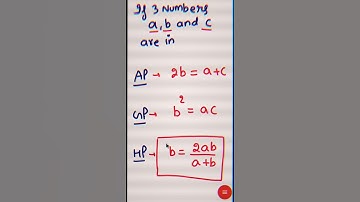 If 3 Numbers
a, b and c
are in
AP → 2b = a+c
GP → b² = ac
HP → b = 2ab / a+b